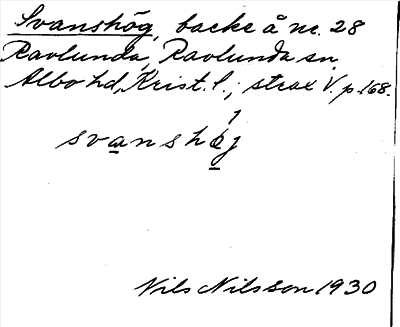 Svanshög, backe å nr. 28
Ravlunda, Ravlunda sn.
Albo hd, Krist. l.; strax V. p. 168.
svanshö́j
Nils Nilsson 1930